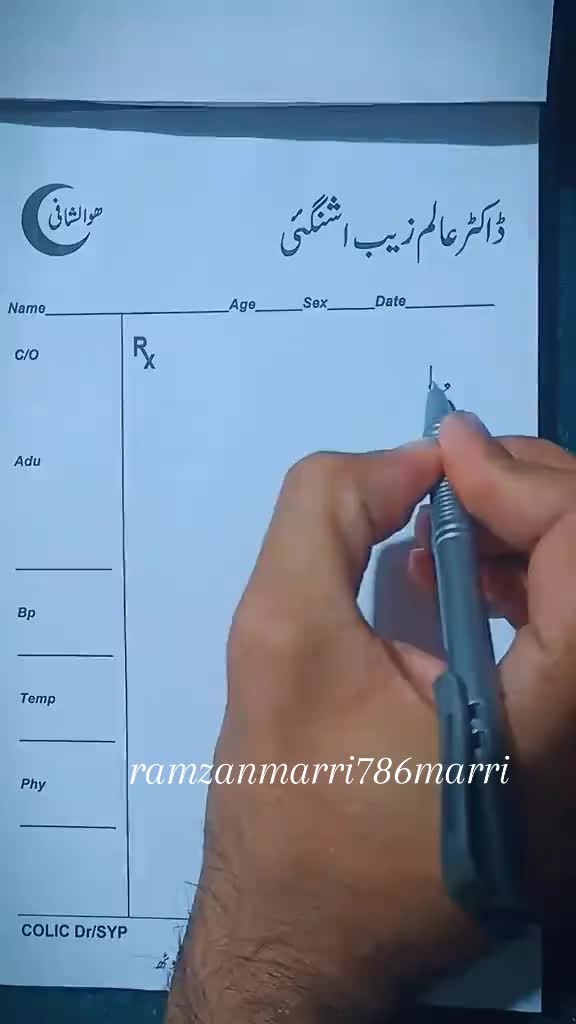 ھوالشافی
ڈاکٹر عالم زیب اشنگئی
Name Age Sex Date
C/O
Rx
Adu
Bp
Temp
ramzanmarri786marri
Phy
COLIC Dr/SYP